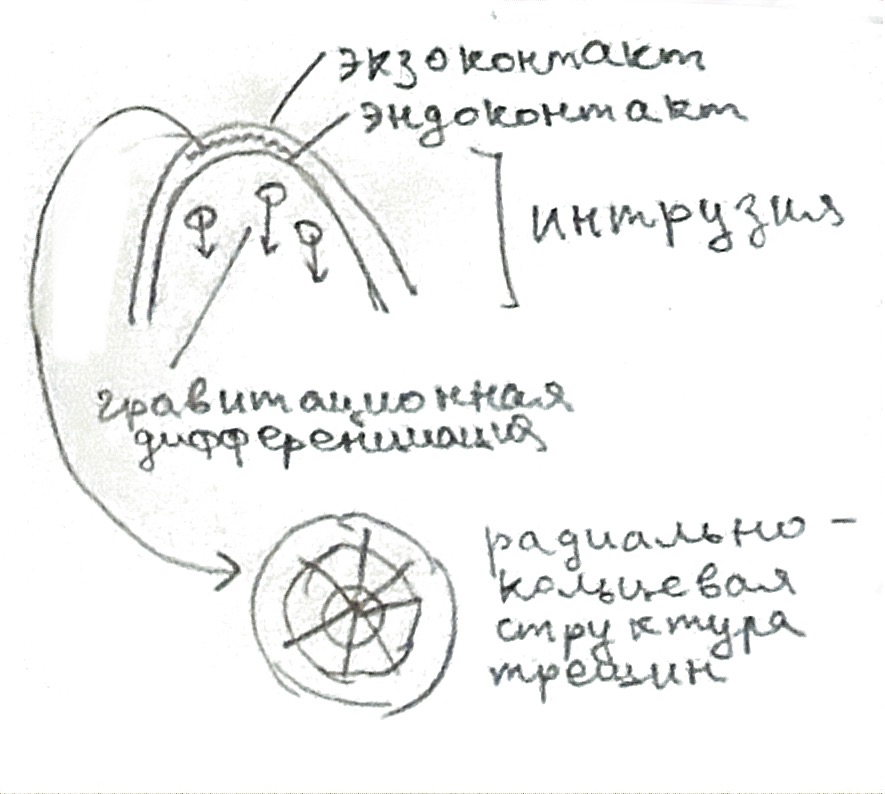 экзоконтакт
эндоконтакт
интрузия
гравитационная
дифференциация
радиально -
кольцевая
структура
трещин